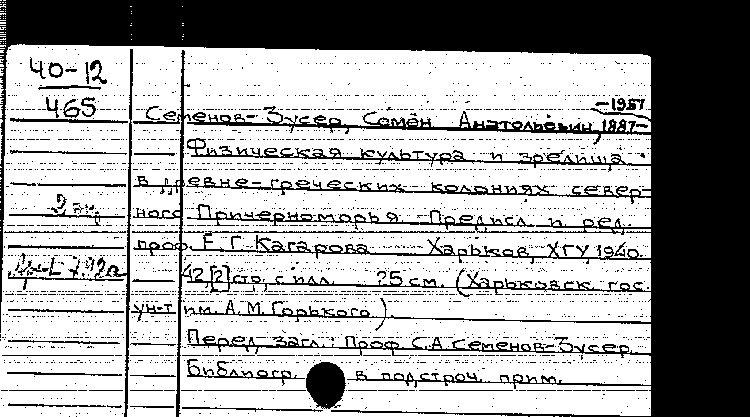 40-12
465
-1957
Семенов-Зусер, Семён Анатольевич, 1887-
Физическая культура и зрелища
в древне-греческих колониях север-
2 экз
ного Причерноморья Предисл. и ред.
проф. Е. Г. Кагарова Харьков, ХГУ, 1940.
42,[2] стр., с илл. 25 см. (Харьковск. гос.
ун-т им. А. М. Горького).
Перед загл.: Проф. С.А. Семенов-Зусер.
Библиогр. в подстроч. прим.